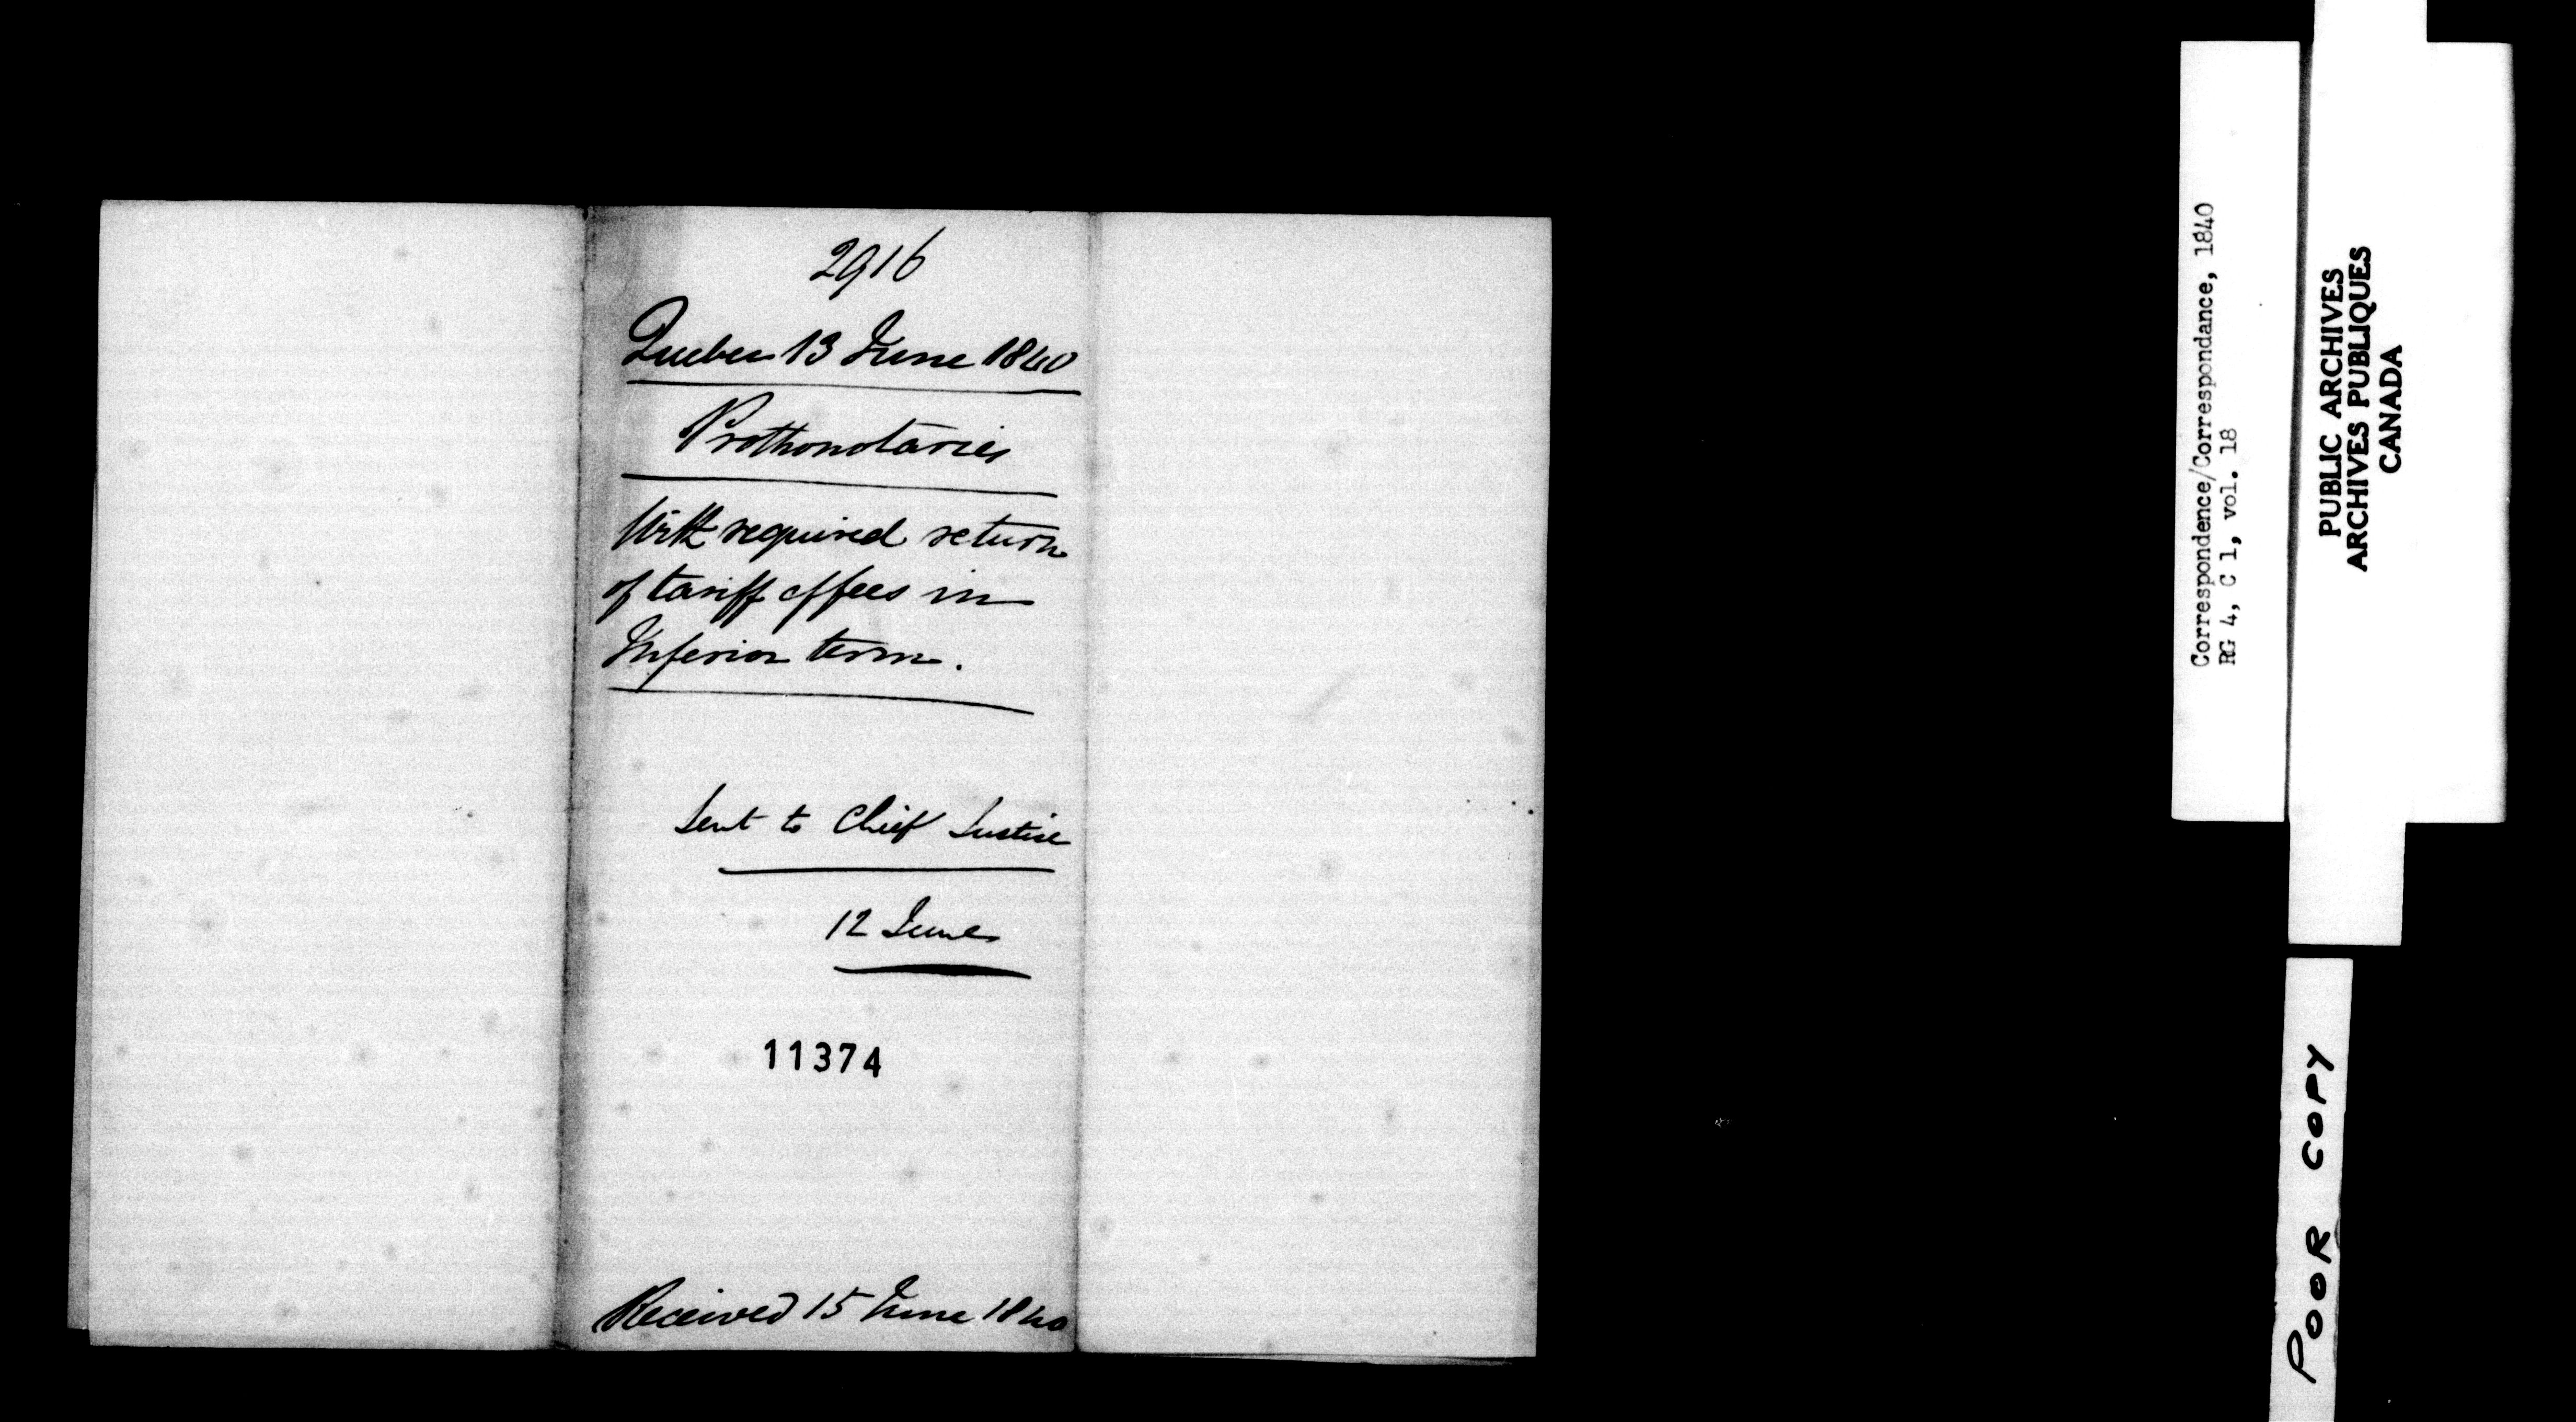 2916
Quebec 13 June 1840
Prothonotaries
With required return
of tariff of fees in
Inferior term.
Sent to Chief Justice
12 June
11374
Received 15 June 1840
Correspondence/Correspondance, 1840
RG 4, C 1, vol. 18
PUBLIC ARCHIVES
ARCHIVES PUBLIQUES
CANADA
POOR COPY